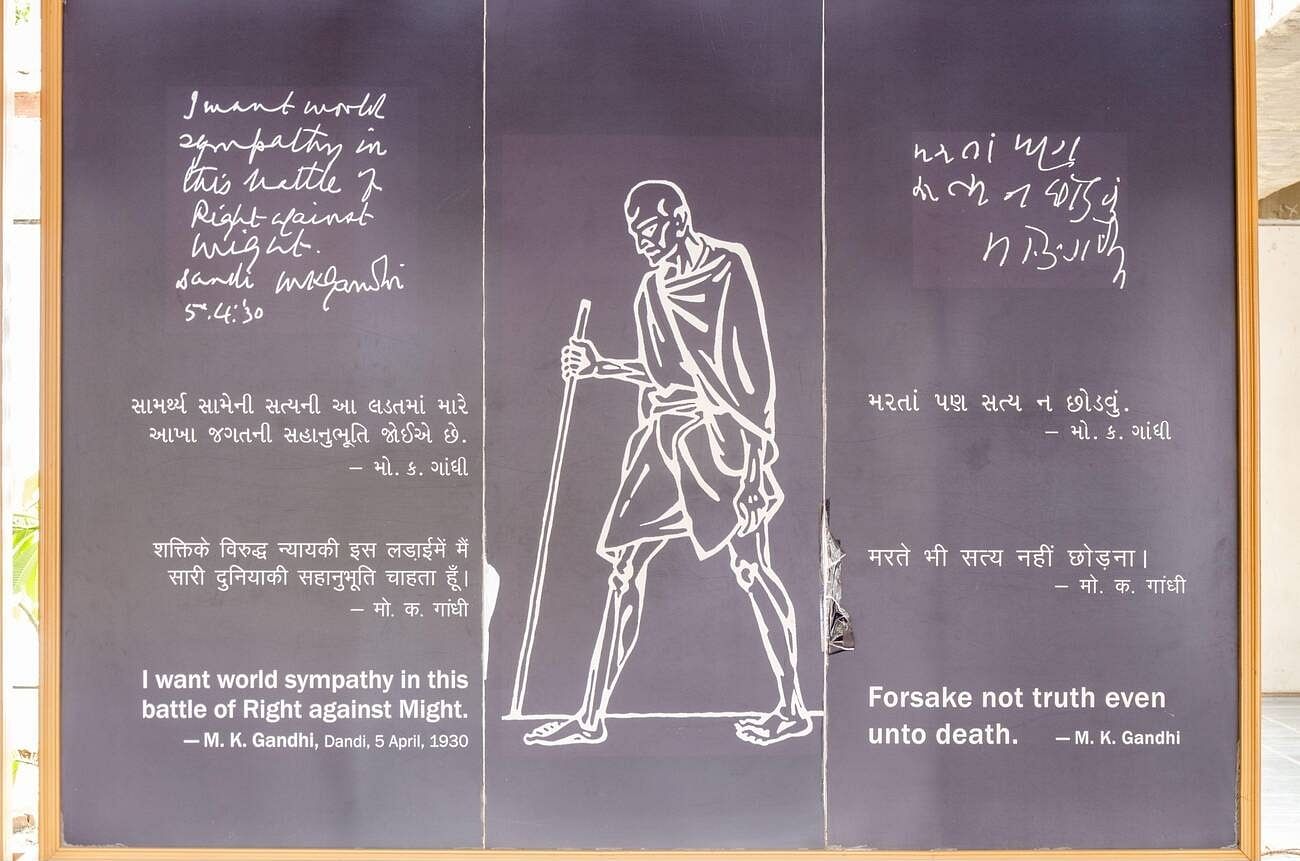 I want world
sympathy in
this battle of
Right against
might.
Dandi MKGandhi
5.4.'30
સામર્થ્ય સામેની સત્યની આ લડતમાં મારે
આખા જગતની સહાનુભૂતિ જોઈએ છે.
– મો. ક. ગાંધી
शक्तिके विरुद्ध न्यायकी इस लड़ाईमें मैं
सारी दुनियाकी सहानुभूति चाहता हूँ।
– मो. क. गांधी
I want world sympathy in this
battle of Right against Might.
— M. K. Gandhi, Dandi, 5 April, 1930
મરતાં પણ
સત્ય ન છોડવું
મો. ક. ગાંધી
મરતાં પણ સત્ય ન છોડવું.
– મો. ક. ગાંધી
मरते भी सत्य नहीं छोड़ना।
– मो. क. गांधी
Forsake not truth even
unto death. — M. K. Gandhi